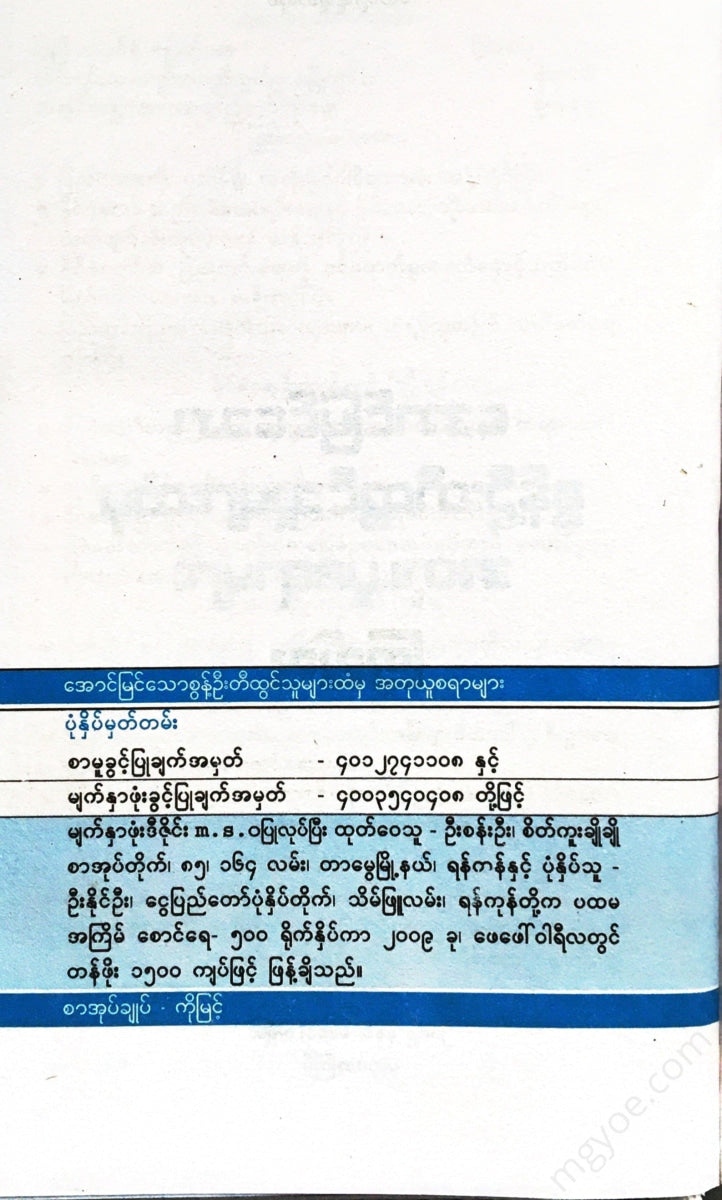 အောင်မြင်သောစွန့်ဦးတီထွင်သူများထံမှ အတုယူစရာများ
ပုံနှိပ်မှတ်တမ်း
စာမူခွင့်ပြုချက်အမှတ် - ၄၀၁၂၇၄၁၁၀၈ နှင့်
မျက်နှာဖုံးခွင့်ပြုချက်အမှတ် - ၄၀၀၃၅၄၀၄၀၈ တို့ဖြင့်
မျက်နှာဖုံးဒီဇိုင်း m.s.ဝပြုလုပ်ပြီး ထုတ်ဝေသူ - ဦးစန်းဦး၊ စိတ်ကူးချိုချို
စာအုပ်တိုက်၊ ၈၅၊ ၁၆၄ လမ်း၊ တာမွေမြို့နယ်၊ ရန်ကုန်နှင့် ပုံနှိပ်သူ -
ဦးနိုင်ဦး၊ ငွေပြည်တော်ပုံနှိပ်တိုက်၊ သိမ်ဖြူလမ်း၊ ရန်ကုန်တို့က ပထမ
အကြိမ် စောင်ရေ- ၅၀၀ ရိုက်နှိပ်ကာ ၂၀၀၉ ခု၊ ဖေဖေါ်ဝါရီလတွင်
တန်ဖိုး ၁၅၀၀ ကျပ်ဖြင့် ဖြန့်ချိသည်။
စာအုပ်ချုပ် - ကိုမြင့်
mgyoe.com